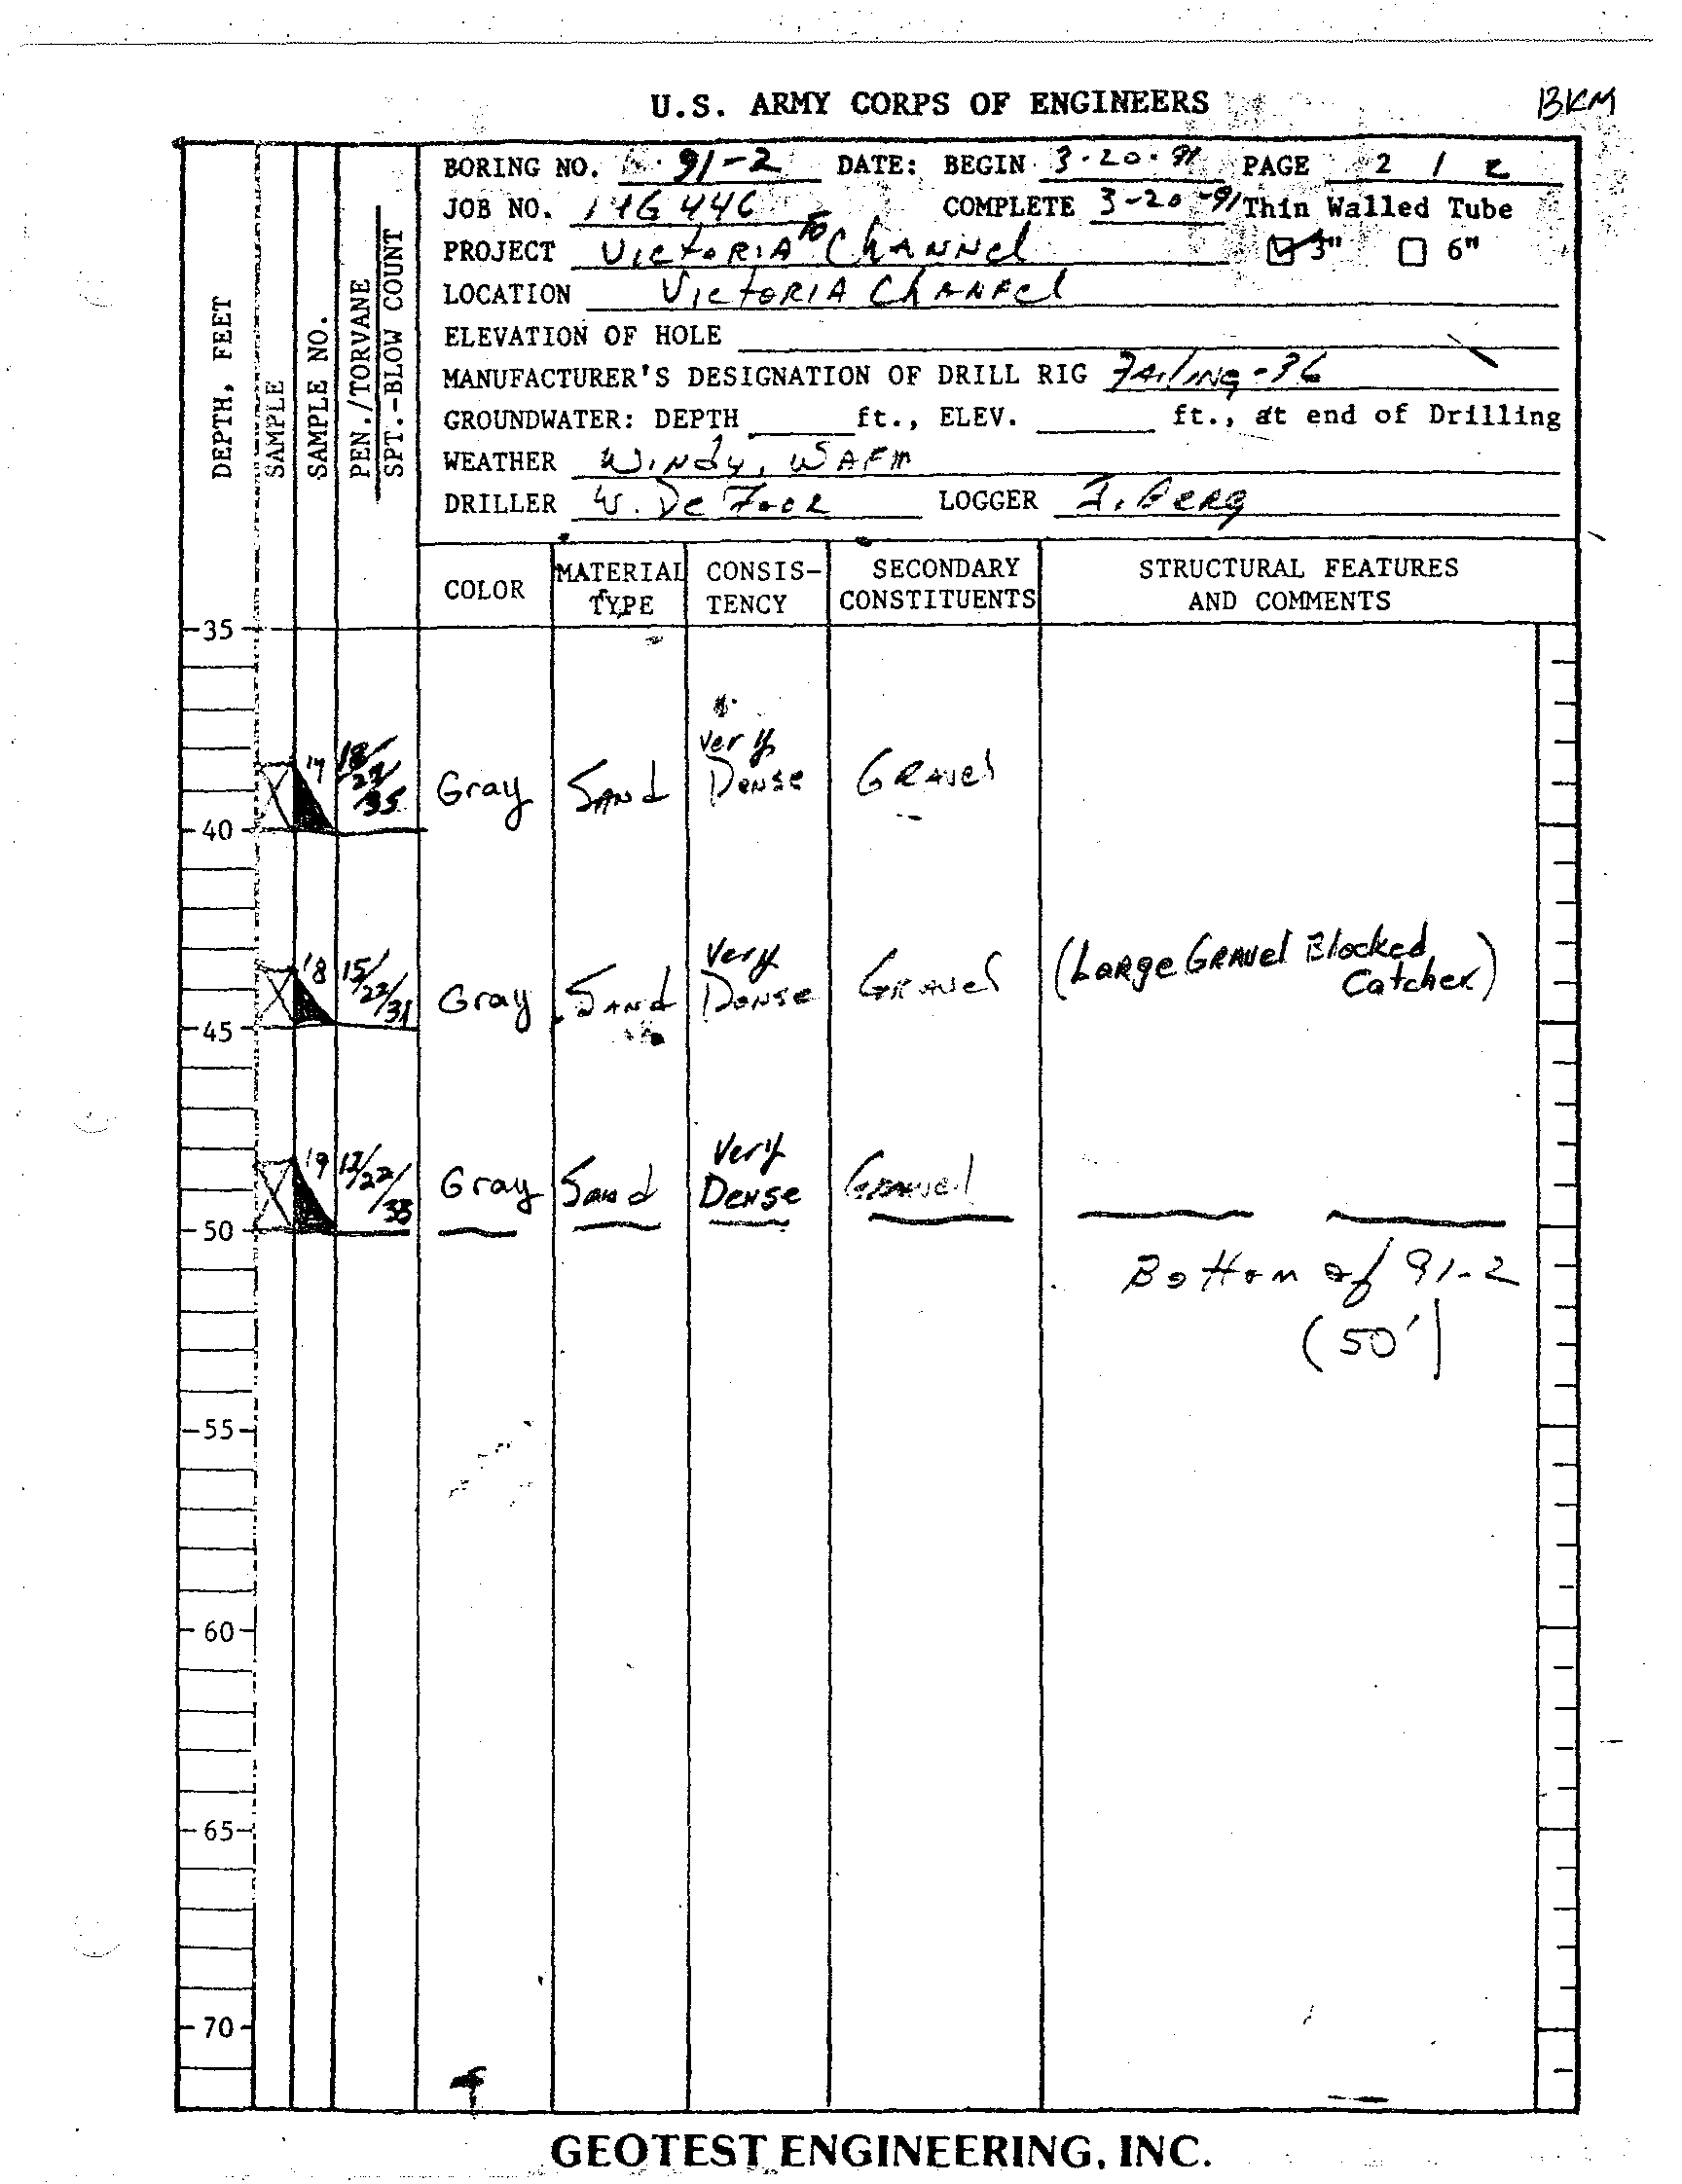 U.S. ARMY CORPS OF ENGINEERS
BKM
BORING NO. 91-2 DATE: BEGIN 3-20-91 PAGE 2 / 2
JOB NO. COMPLETE 3-20-91 Thin Walled Tube
PROJECT VictoRIA to ChANNel 3" 6"
LOCATION VictoRIA ChANNel
ELEVATION OF HOLE
MANUFACTURER'S DESIGNATION OF DRILL RIG FAiliNg-36
GROUNDWATER: DEPTH ft., ELEV. ft., at end of Drilling
WEATHER WiNdy, WARM
DRILLER W. LOGGER BeRg
DEPTH, FEET
SAMPLE
SAMPLE NO.
PEN./TORVANE
SPT.-BLOW COUNT
COLOR MATERIAL TYPE CONSIS-TENCY SECONDARY CONSTITUENTS STRUCTURAL FEATURES AND COMMENTS
35
17 18/27/35 Gray SANd Very DeNse GRAVel
40
18 15/22/31 Gray SANd Very DeNse GRAVel (LaRge GRAVel Blocked Catcher)
45
19 Gray Sand Very Dense Gravel
50
Bottom of 91-2
(50')
55
60
65
70
GEOTEST ENGINEERING, INC.